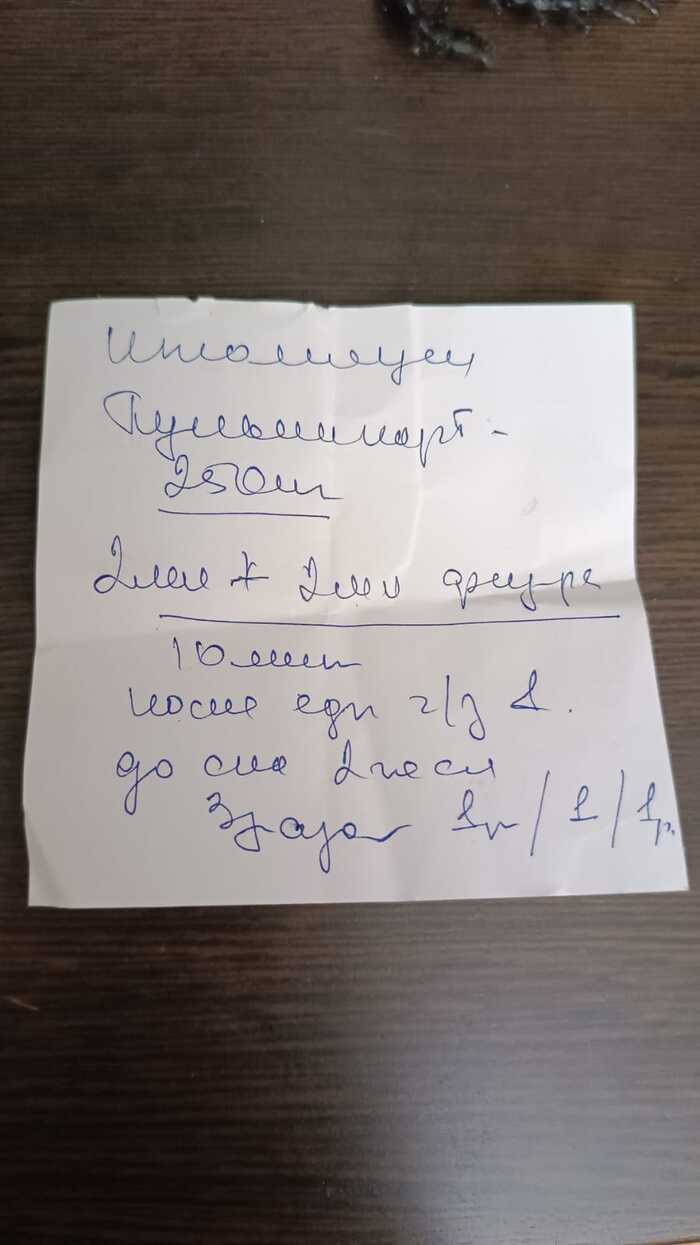 Ингаляции
Пульмикорт -
250
2мл + 2мл физ-ра
10 мин
после еды ч/з 1.
до сна 2 часа
1р / 1 / 1р.